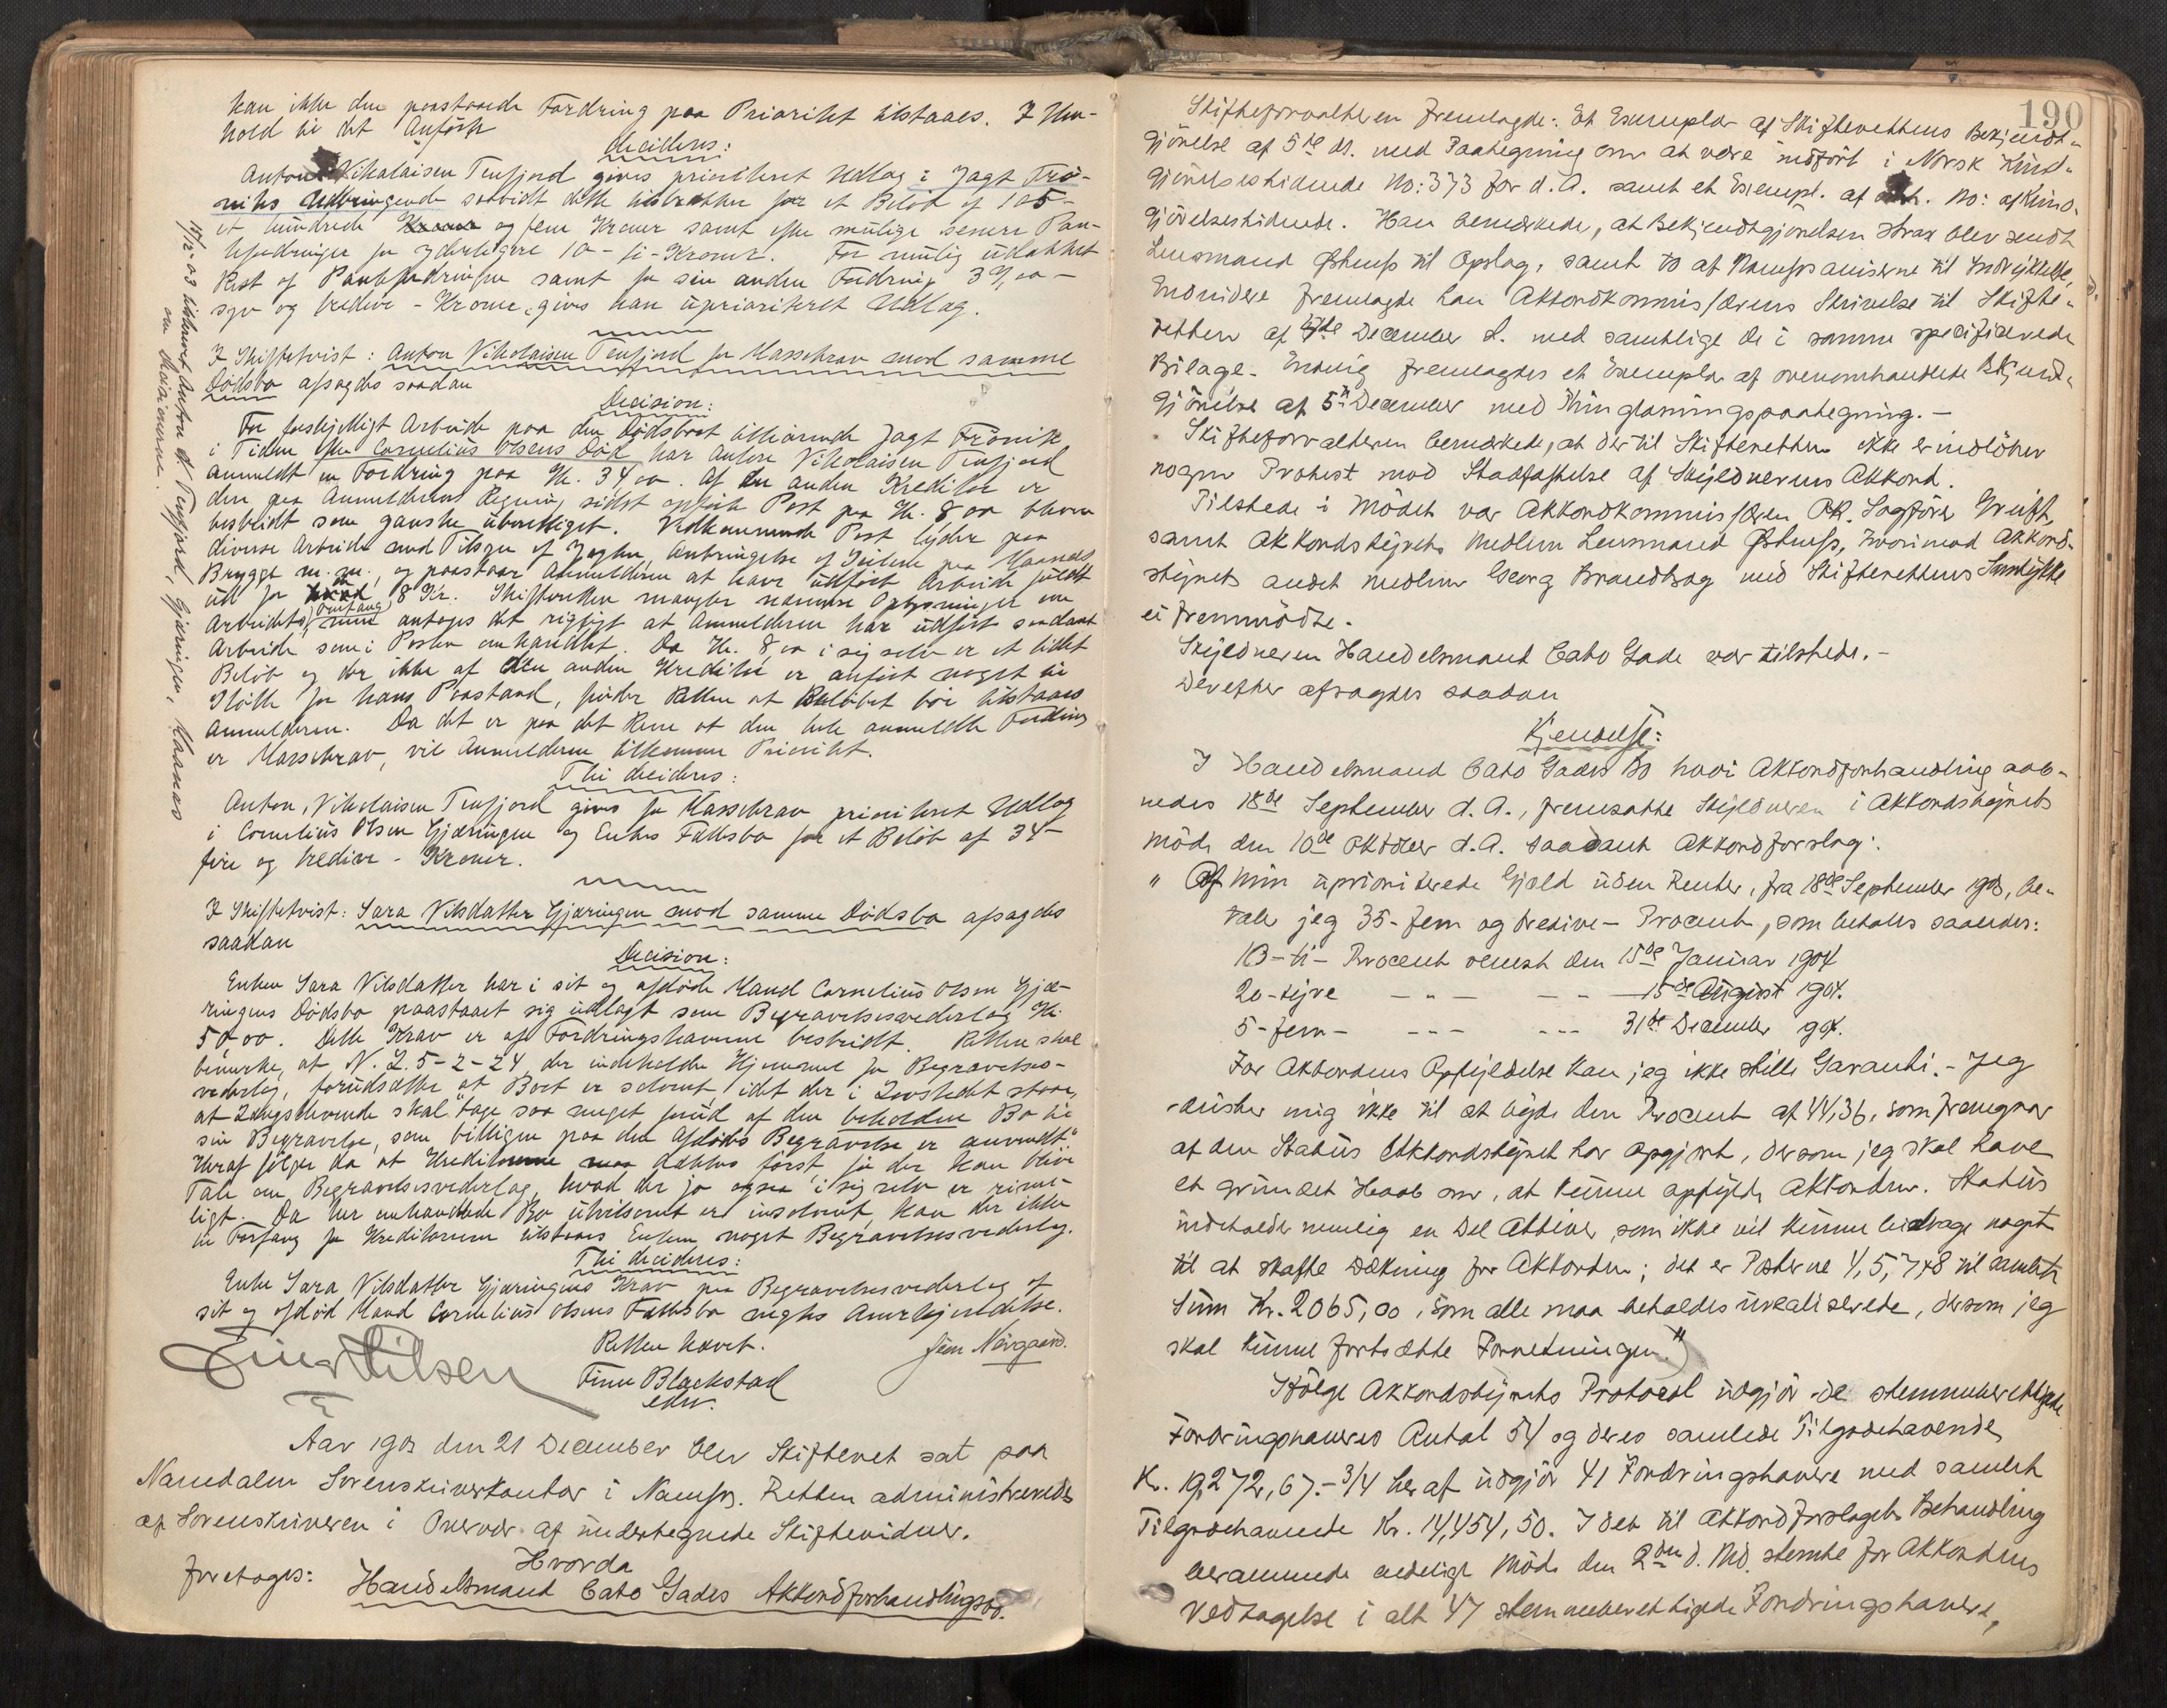 kan ikke den paastaaede Fordring paa Prioritet tilstaaes. I Hen-
hold til det Anførte
decideres:
Anton Nikolaisen Tenfjord gives prioriteret Udlag i Jagt Frö-
niks Udbringende saavidt dette tilstrækker for et Beløb af 105 -
et hundrede og fem Kroner samt efter mulige senere Pan-
tefordringer for yderligere 10 - ti - Kroner. For mulig udækket
Rest af Pantefordringen samt for sin anden Fordring 37,00 -
syv og tredive - Kroner, gives han uprioriteret Udlag.
I Skiftetvist: Anton Nikolaisen Tenfjord for Massekrav mod samme
Dødsbo afsagdes saadan
Decision:
For forskjelligt Arbeide paa den Dødsboet tilhørende Jagt Frönik
i Tiden efter Cornelius Olsens Død har Anton Nikolaisen Tenfjord
anmeldt en Fordring paa Kr. 34,00. Af en anden Kreditor er
den paa Anmelderens Regning sidst opførte Post paa Kr. 8,00 bleven
bestridt som ganske uberettiget. Vedkommende Post lyder paa
diverse Arbeide med Tilsyn af Jagten, Anbringelse af Seilene paa Marnæs
Brygge m. m., og paastaar Anmelderen at have udført Arbeide fuldt
ud for 8 Kr. Skifteretten mangler nærmere Oplysninger om
Arbeidets Omfang, men antages det rigtigt at Anmelderen har udført saadant
Arbeide som i Posten omhandlet. Da Kr. 8,00 i sig selv er et lidet
Beløb og der ikke af den anden Kreditor er anført noget til
Støtte for hans Paastand, finder Retten at Beløbet bör tilstaaes
Anmelderen. Da det er paa det Rene at den hele anmeldte Fordring
er Massekrav, vil Anmelderen tilkomme Prioritet.
Thi decideres:
Anton Nikolaisen Tenfjord gives for Massekrav prioriteret Udlag
i Cornelius Olsen Gjæringen og Enkes Fællesbo for et Beløb af 34 -
fire og tredive - Kroner.
I Skiftetvist: Sara Nilsdatter Gjæringen mod samme Dødsbo afsagdes
saadan
Decision:
Enken Sara Nilsdatter har i sit og afdøde Mand Cornelius Olsen Gjæ-
ringens Dødsbo paastaaet sig udlagt som Begravelsesvederlag Kr.
50,00. Dette Krav er af Fordringshaverne bestridt. Retten skal
bemærke, at N. L. 5-2-24 der indeholder Hjemmel for Begravelses-
vederlag, forudsætter at Boet er solvent, idet der i Lovstedet staar,
at Længstlevende skal "tage saa meget forud af den beholdne Bo til
sin Begravelse, som billigen paa den Afdødes Begravelse er anvendt".
Heraf følger da at Kreditorerne maa dækkes först, før der kan blive
Tale om Begravelsesvederlag, hvad der jo ogsaa i sig selv er rime-
ligt. Da her omhandlede Bo utvilsomt er insolvent, kan der ikke
til Forfang for Kreditorerne tilstaaes Enken noget Begravelsesvederlag.
Thi decideres:
Enke Sara Nilsdatter Gjæringens Krav paa Begravelsesvederlag af
sit og afdød Mand Cornelius Olsens Fællesbo nægtes Anerkjendelse.
Retten hævet.
Finn Blackstad
edv.
Jein Norgaard.
Aar 1903 den 21 December blev Skifteret sat paa
Namdalen Sorenskriverkontor i Namsos. Retten administreredes
af Sorenskriveren i Overvær af undertegnede Skiftevidner.
Hvorda
foretages: Handelsmand Cato Gades Akkordforhandlingsbo.
18/12 - 03 tilskrevet Anton N. Tenfjord, Gjæringen, Marnæs
om Decisionerne.
190
Skifteforvalteren fremlagde: Et Exemplar af Skifterettens Bekjendt-
gjörelse af 5te ds. med Paategning om at være indført i Norsk Kund-
gjörelsestidende No: 373 for d. A. samt et Exempl. af No: af Kund-
gjörelsestidende. Han bemærkede, at Bekjendtgjörelsen strax blev sendt
Lensmand til Opslag, samt to af Namsosaviserne til Indrykkelse,
Endvidere fremlagde han Akkordkommissærens Skrivelse til Skifte-
retten af December d. med samtlige de i samme specificerede
Bilage. Endvidere fremlagdes et Exemplar af ovenomhandlede Bekjendt-
gjörelse af 5te December med Thinglæsningspaategning. -
Skifteforvalteren bemærkede, at der til Skifteretten ikke er indlöben
nogen Protest mod Stadfæstelse af Skyldnerens Akkord.
Tilstede i Mödet var Akkordkommissæren, Sagförer Greift,
samt Akkordstyrets Medlem Lensmand, hvorimod Akkord-
styrets andet medlem Georg Brandtzæg med Skifterettens Samtykke
ei fremmödte.
Skyldneren Handelsmand Cato Gade var tilstede. -
Derefter afsagdes saadan
Kjendelse:
I Handelsmand Cato Gades Bo hvori Akkordforhandling aab-
nedes 18de September d. A., fremsatte Skyldneren i Akkordstyrets
möde den 10de Oktober d. A. saadant Akkordforslag:
" Af min uprioriterede Gjæld uden Renter, fra 18de September 1903, be-
taler jeg 35 - fem og tredive - Procent, som betales saaledes:
10 - ti - Procent senest den 15de Januar 1904
20 - tyve - " - - - 15de August 1904.
5 - fem - - - - - - - 31de December 1904.
For Akkordens Opfyldelse kan jeg ikke stille Garanti. - Jeg
drister mig ikke til at byde den Procent af 44,36, som fremgaar
af den Status Akkordstyret har opgjort, dersom jeg skal have
et grundet Haab om, at kunne opfylde Akkorden. Status
indeholder nemlig en Del Aktiver, som ikke vil kunne bidrage noget
til at skaffe Dækning for Akkorden; det er Posterne 4, 5, 7 & 8 til samlet
Sum Kr. 2065,00, som alle maa beholdes urealiserede, dersom jeg
skal kunne fortsætte Forretningen."
Ifölge Akkordstyrets Protocol udgjör de stemmeberettigede
Fordringshaveres Antal 54 og deres samlede Tilgodehavende
Kr. 19,272,67. - 3/4 heraf udgjör 41 Fordringshavere med samlet
Tilgodehavende Kr. 14,454,50. I det til Akkordforslagets Behandling
berammede endelige Möde den 2den d. Md. stemte for Akkordens
Vedtagelse i alt 47 stemmeberettigede Fordringshavere,